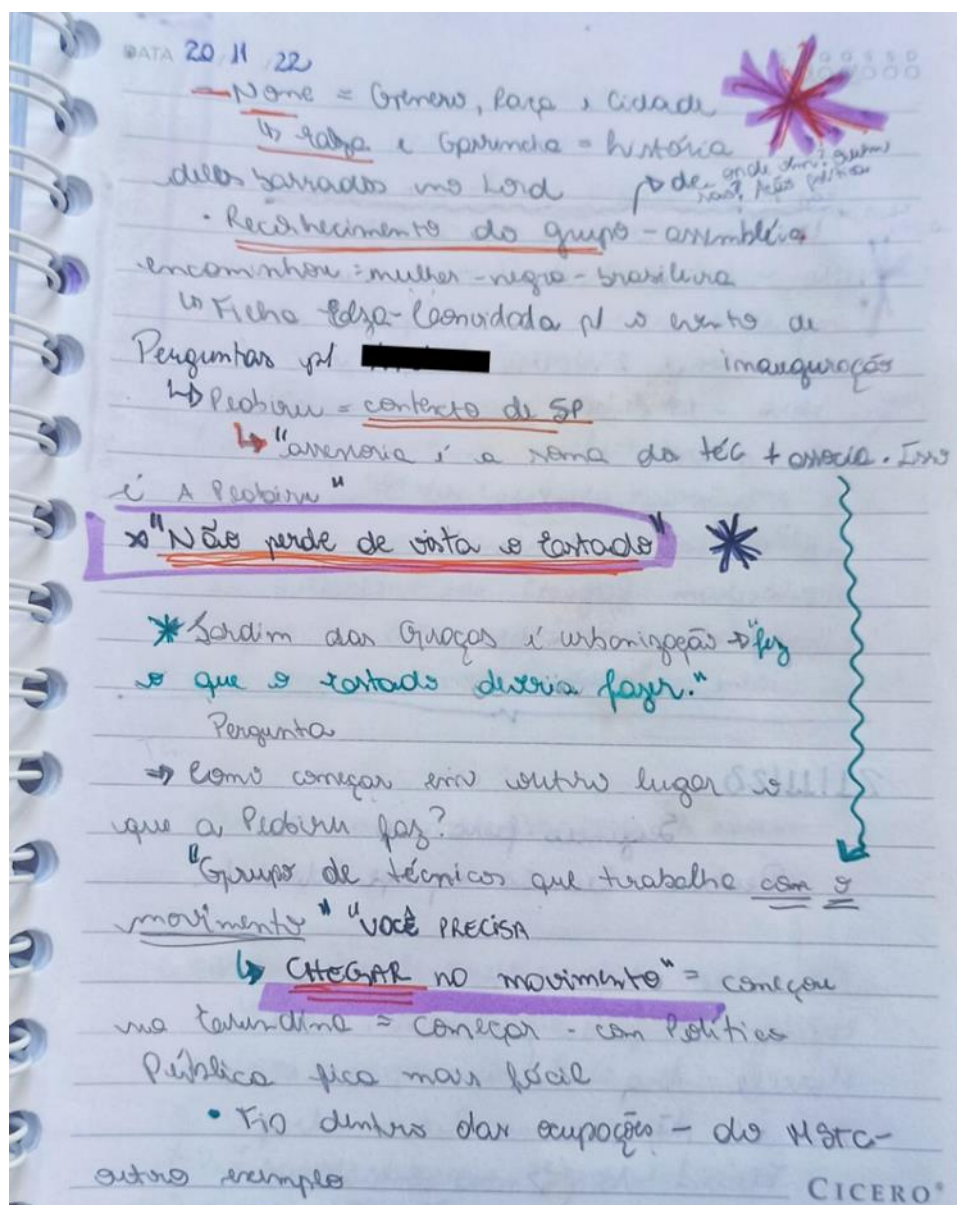 DATA 20 11 22
Nome = Gênero, Raça, Cidade
↳ Edza e Garrincha = história
deles barrados no Lord
de onde vem? quem não? Ação política
• Reconhecimento do grupo - assembléia
encaminhou = mulher - negra - brasileira
↳ Ficha Edza - Convidada p/ o evento de
Perguntas p/ inauguração
↳ Peabiru = contexto de SP
↳ "assessoria é a soma do téc + associa. Isso
é A Peabiru"
"Não perde de vista o Estado"
* Jardim das Graças é urbanização → "fez
o que o Estado deveria fazer."
Pergunta
⇒ Como começar em outro lugar o
que a Peabiru faz?
"Grupo de técnicos que trabalha com o
movimento" "VOCÊ PRECISA
↳ CHEGAR no movimento" = começou
na = começar - com Política
Pública fica mais fácil
• Fio dentro das ocupações - do MSTC -
outro exemplo
CICERO